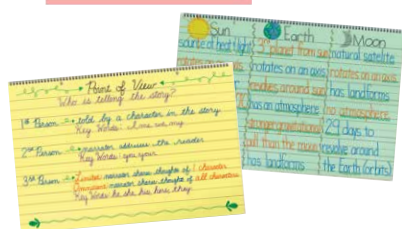 Point of View
Who is telling the story?
1st Person told by a character in the story.
Key Words: I, me, we, my
2nd Person narrator address the reader
Key Words: you, your
3rd Person Limited: narrator shares thoughts of 1 character
Omniscient: narrator shares thoughts of all characters
Key Words: he, she, his, hers, they
Sun Earth Moon
source of heat & light 3rd planet from sun natural satellite
rotates on an axis rotates on an axis
revolves around sun has landforms
has an atmosphere no atmosphere
29 days to
than the moon revolve around
has landforms the Earth (orbits)